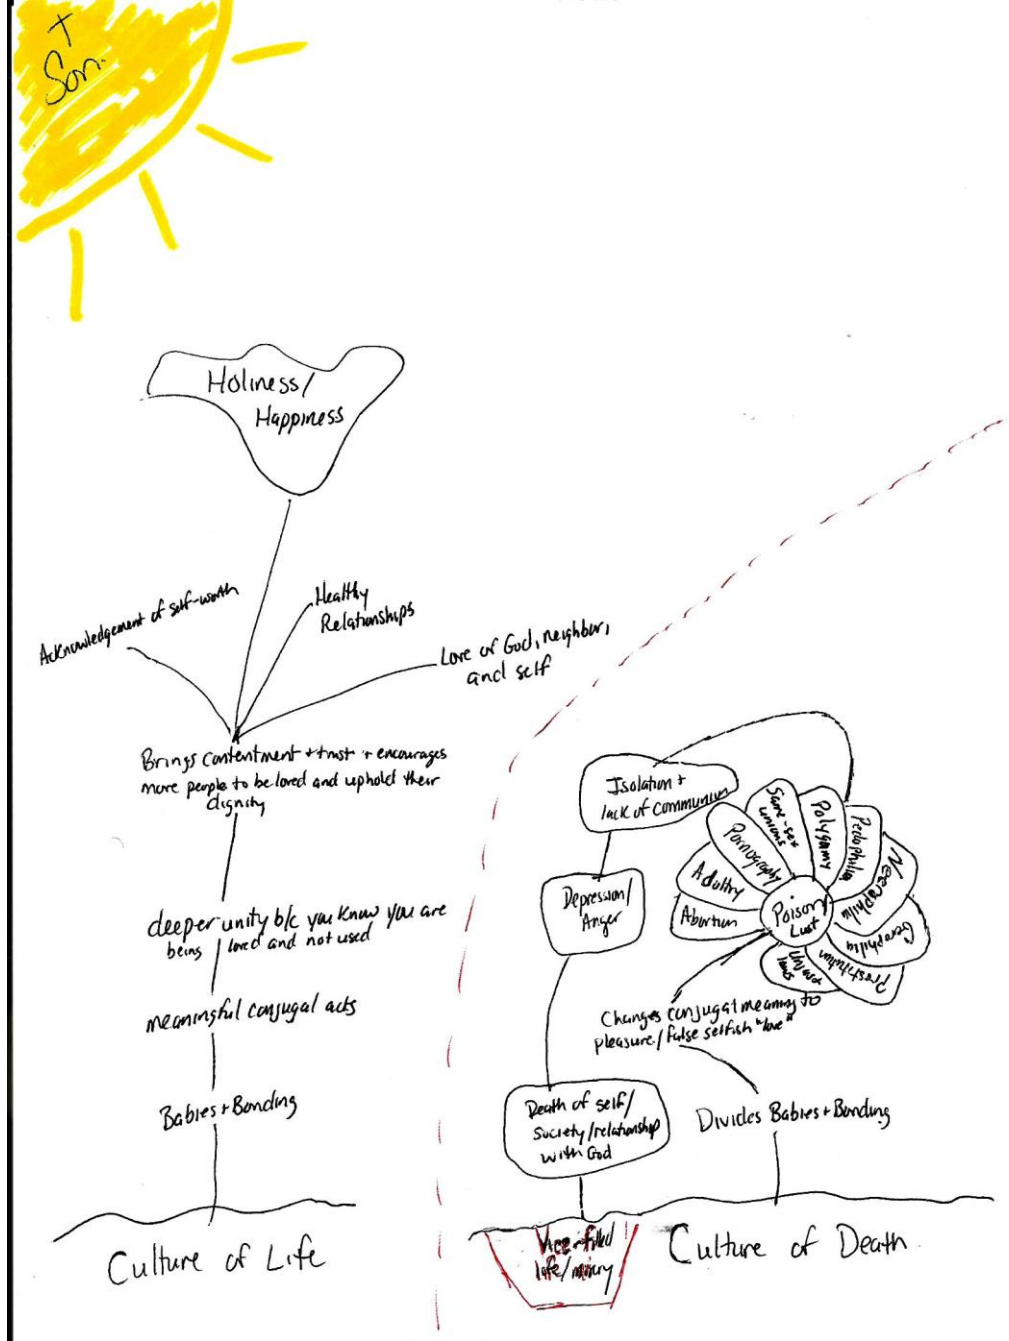 +
Son.
Holiness/
Happiness
Acknowledgement of self-worth
Healthy
Relationships
Love of God, neighbor,
and self
Brings contentment + trust + encourages
more people to be loved and uphold their
dignity
deeper unity b/c you know you are
being loved and not used
meaningful conjugal acts
Babies + Bonding
Culture of Life
Isolation +
lack of communion
Depression/
Anger
Death of self/
Society/relationship
with God
Vice-filled
life/misery
Abortion
Adultry
Pornography
Same-sex
unions
Polygamy
Pedophilia
Necrophilia
Gerophilia
Prostitution
Unjust
laws
Poison
Lust
Changes conjugal meaning to
pleasure/false selfish "love"
Divides Babies + Bonding
Culture of Death